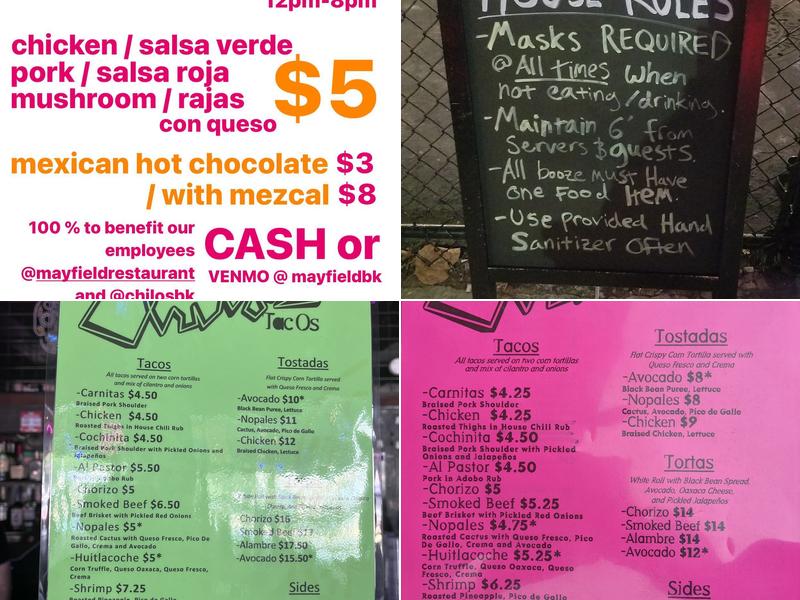 12pm-8pm
chicken / salsa verde
pork / salsa roja
mushroom / rajas
con queso
$5
mexican hot chocolate $3
/ with mezcal $8
100 % to benefit our
employees
@mayfieldrestaurant
and @chilosbk
CASH or
VENMO @ mayfieldbk
HOUSE RULES
-Masks REQUIRED
@ All times when
not eating/drinking.
-Maintain 6' from
Servers & guests.
-All booze must Have
one Food Item.
-Use provided Hand
Sanitizer Often
TacOs
Tacos
All tacos served on two corn tortillas
and mix of cilantro and onions
-Carnitas $4.50
Braised Pork Shoulder
-Chicken $4.50
Roasted Thighs in House Chili Rub
-Cochinita $4.50
Braised Pork Shoulder with Pickled Onions and
Jalapeños
-Al Pastor $5.50
Adobo Rub
-Chorizo $5
-Smoked Beef $6.50
Beef Brisket with Pickled Red Onions
-Nopales $5*
Roasted Cactus with Queso Fresco, Pico De
Gallo, Crema and Avocado
-Huitlacoche $5*
Corn Truffle, Queso Oaxaca, Queso Fresco,
Crema
-Shrimp $7.25
Roasted Pineapple, Pico de Gallo
Tostadas
Flat Crispy Corn Tortilla served
with Queso Fresco and Crema
-Avocado $10*
Black Bean Puree, Lettuce
-Nopales $11
Cactus, Avocado, Pico de Gallo
-Chicken $12
Braised Chicken, Lettuce
Chorizo $16
-Smoked Beef $17
-Alambre $17.50
-Avocado $15.50*
Sides
Tacos
All tacos served on two corn tortillas
and mix of cilantro and onions
-Carnitas $4.25
Braised Pork Shoulder
-Chicken $4.25
Roasted Thighs in House Chili Rub
-Cochinita $4.50
Braised Pork Shoulder with Pickled
Onions and Jalapeños
-Al Pastor $4.50
Pork in Adobo Rub
-Chorizo $5
-Smoked Beef $5.25
Beef Brisket with Pickled Red Onions
-Nopales $4.75*
Roasted Cactus with Queso Fresco, Pico
De Gallo, Crema and Avocado
-Huitlacoche $5.25*
Corn Truffle, Queso Oaxaca, Queso
Fresco, Crema
-Shrimp $6.25
Roasted Pineapple, Pico de Gallo
Tostadas
Flat Crispy Corn Tortilla served with
Queso Fresco and Crema
-Avocado $8*
Black Bean Puree, Lettuce
-Nopales $8
Cactus, Avocado, Pico de Gallo
-Chicken $9
Braised Chicken, Lettuce
Tortas
White Roll with Black Bean Spread,
Avocado, Oaxaca Cheese,
and Pickled Jalapeños
-Chorizo $14
-Smoked Beef $14
-Alambre $14
-Avocado $12*
Sides